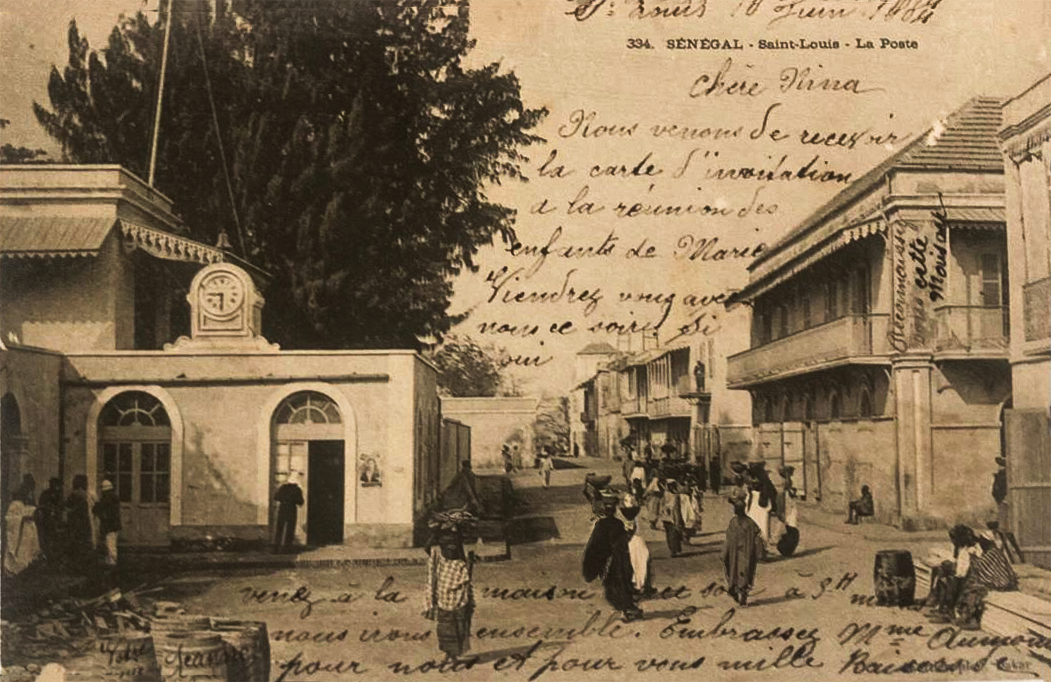 St Louis 10 Juin
334. SÉNÉGAL - Saint-Louis - La Poste
chère Nina
Nous venons de recevoir
la carte d'invitation
a la réunion des
enfants de Marie
Viendrez vous avec
nous ce soir, Si
oui
venez à la maison ce soir à 8H
nous irons ensemble. Embrassez Mme
pour nous et pour vous mille Baisers
Votre
Jeanne
Reconnaissez
vous cette
Maison